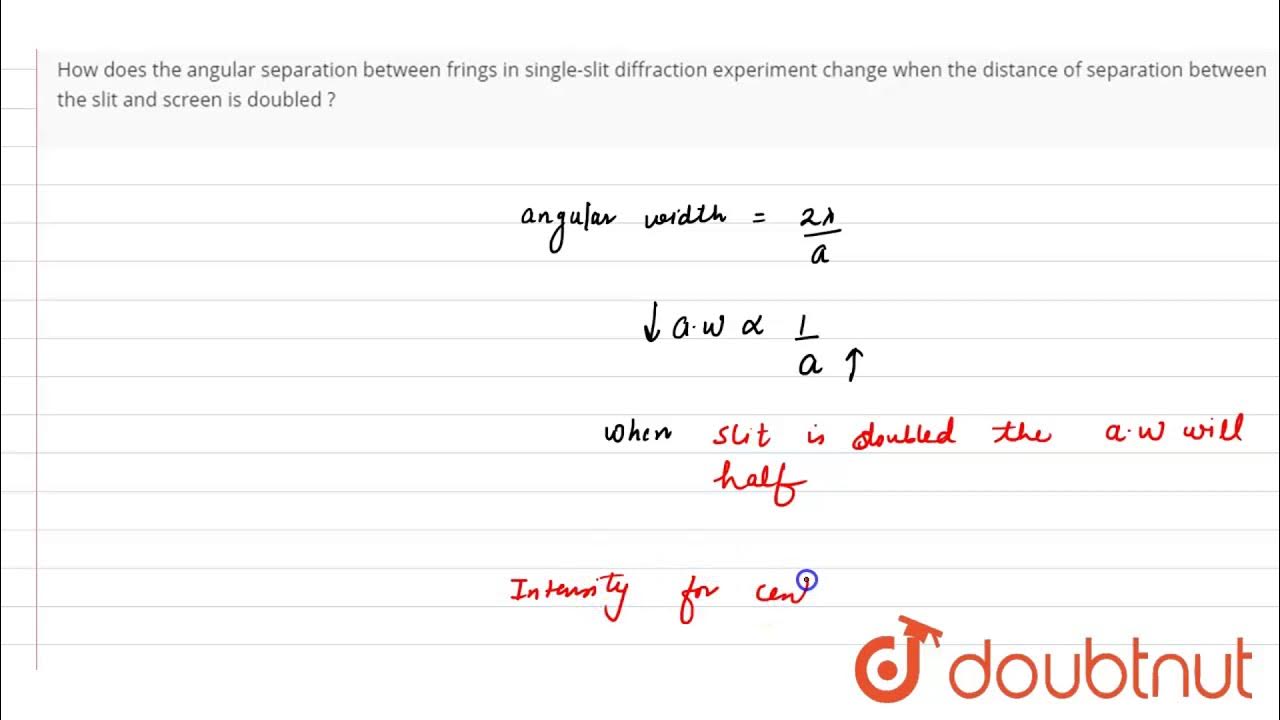 How does the angular separation between frings in single-slit diffraction experiment change when the distance of separation between
the slit and screen is doubled ?
angular width = 2λ/a
↓ a.w ∝ 1/a ↑
when slit is doubled the a.w will
half
Intensity for cen
doubtnut